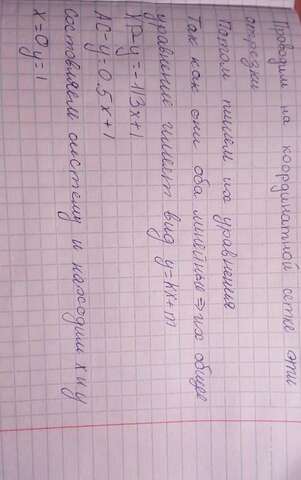 Проводим на координатной сетке эти
отрезки
Потом пишем их уравнения
Так как они оба линейные => их общее
уравнение имеет вид y=kx+m
KP y=-1/3x+1
AC y=0.5x+1
составляем систему и находим x и y
x=0 y=1